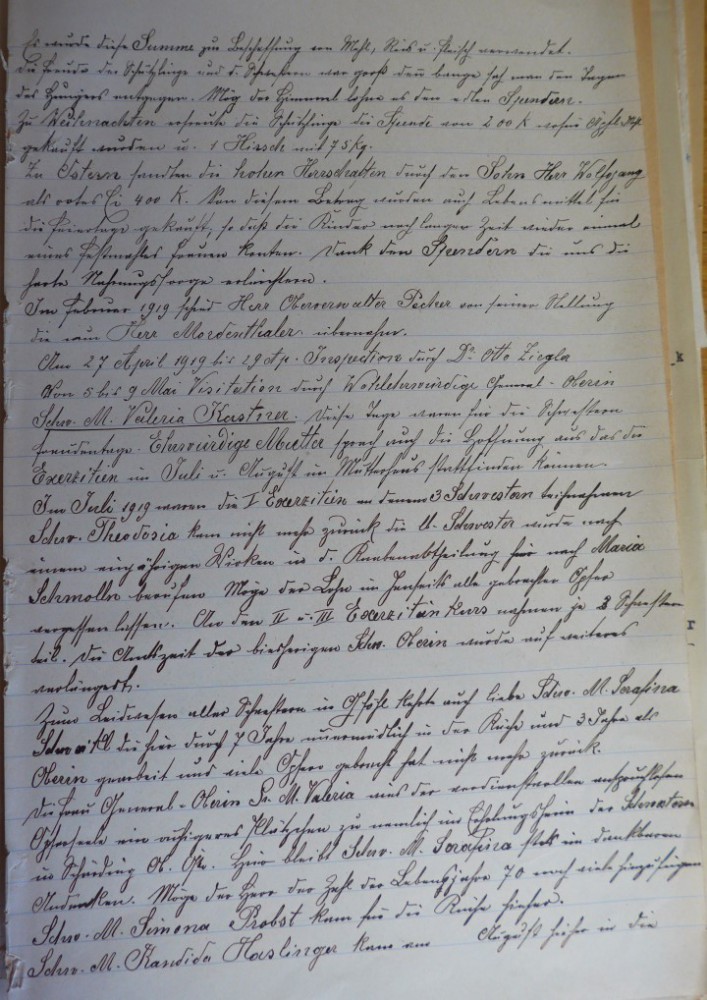 Es wurde diese Summe zur Beschaffung von Mehl, Reis u. Fleisch verwendet.
Die Freude der Schützlinge und d. Schwestern war groß denn bange sah man den Tagen
des Hungers entgegen. Mög der Himmel lohne es den edlen Spendern.
Zu Weihnachten erfreute die Schützlinge die Spende von 200 K wofür Äpfel
gekauft wurden u. 1 Hirsch mit 75 kg.
Zu Ostern sandten die hohen Herrschaften durch den Sohn Herr Wolfgang
als rotes Ei 400 K. Von diesem Betrag wurden auch Lebensmittel für
die Feiertage gekauft, so daß die Kinder nach langer Zeit wieder einmal
eines Festmahles freuen konten. Dank den Spendern die uns die
harte Nahrungssorge erleichtern.
Im Februar 1919 schied Herr Oberverwalter Pacher von seiner Stellung
die nun Herr Mordenthaler übernahm.
Am 27 April 1919 bis 29 Ap. Inspection durch Dr. Otto Ziegla
Von 5 bis 9 Mai Visitation durch Wohlehrwürdige General-Oberin
Schw. M. Valeria Kastner. Diese Tage waren für die Schwestern
Freudentage. Ehrwürdige Mutter sprach auch die Hoffnung aus das die
Exerzitien im Juli u. August im Mutterhaus stattfinden können.
Im Juli 1919 waren die I Exerzitien an denen 3 Schwestern teilnahmen
Schw. Theodosia kam nicht mehr zurück die lb. Schwester wurde nach
einem einjährigen Wirken in d. Knabenabtheilung hier nach Maria
Schmolln berufen Möge der Lohn im Jenseits alle gebrachten Opfer
vergessen lassen. An den II u. III Exerzitien Kurs nahmen je 2 Schwestern
teil. Die Amtszeit der bisherigen Schw. Oberin wurde auf weiteres
verlängert.
Zum Leidwesen aller Schwestern in Gföhl kehrte auch liebe Schw. M. Serafina
die hier durch 7 Jahre unermüdlich in der Küche und 3 Jahre als
Oberin gearbeit und viele Opfer gebracht hat nicht mehr zurück.
Die Frau General-Oberin Sr. M. Valeria wies der verdienstvollen anspruchlosen
Opferseele ein ruhigeres Plätzchen zu nemlich im Erholungsheim der
in Schärding O. Öst. Hier bleibt Schw. M. Serafina stets im dankbaren
Andenken. Möge der Herr der Zahl der Lebensjahre 70 noch viele hinzufügen
Schw. M. Simona Probst kam für die Küche hieher.
Schw. M. Kandida Haslinger kam am August hieher in die